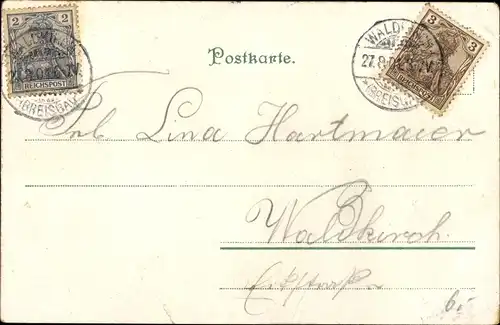 2
REICHSPOST
(BREISGAU)
Postkarte.
WALDK
27.8.
(BREISG
3
Frl. Lina Hartmaier
Waldkirch.
6,-